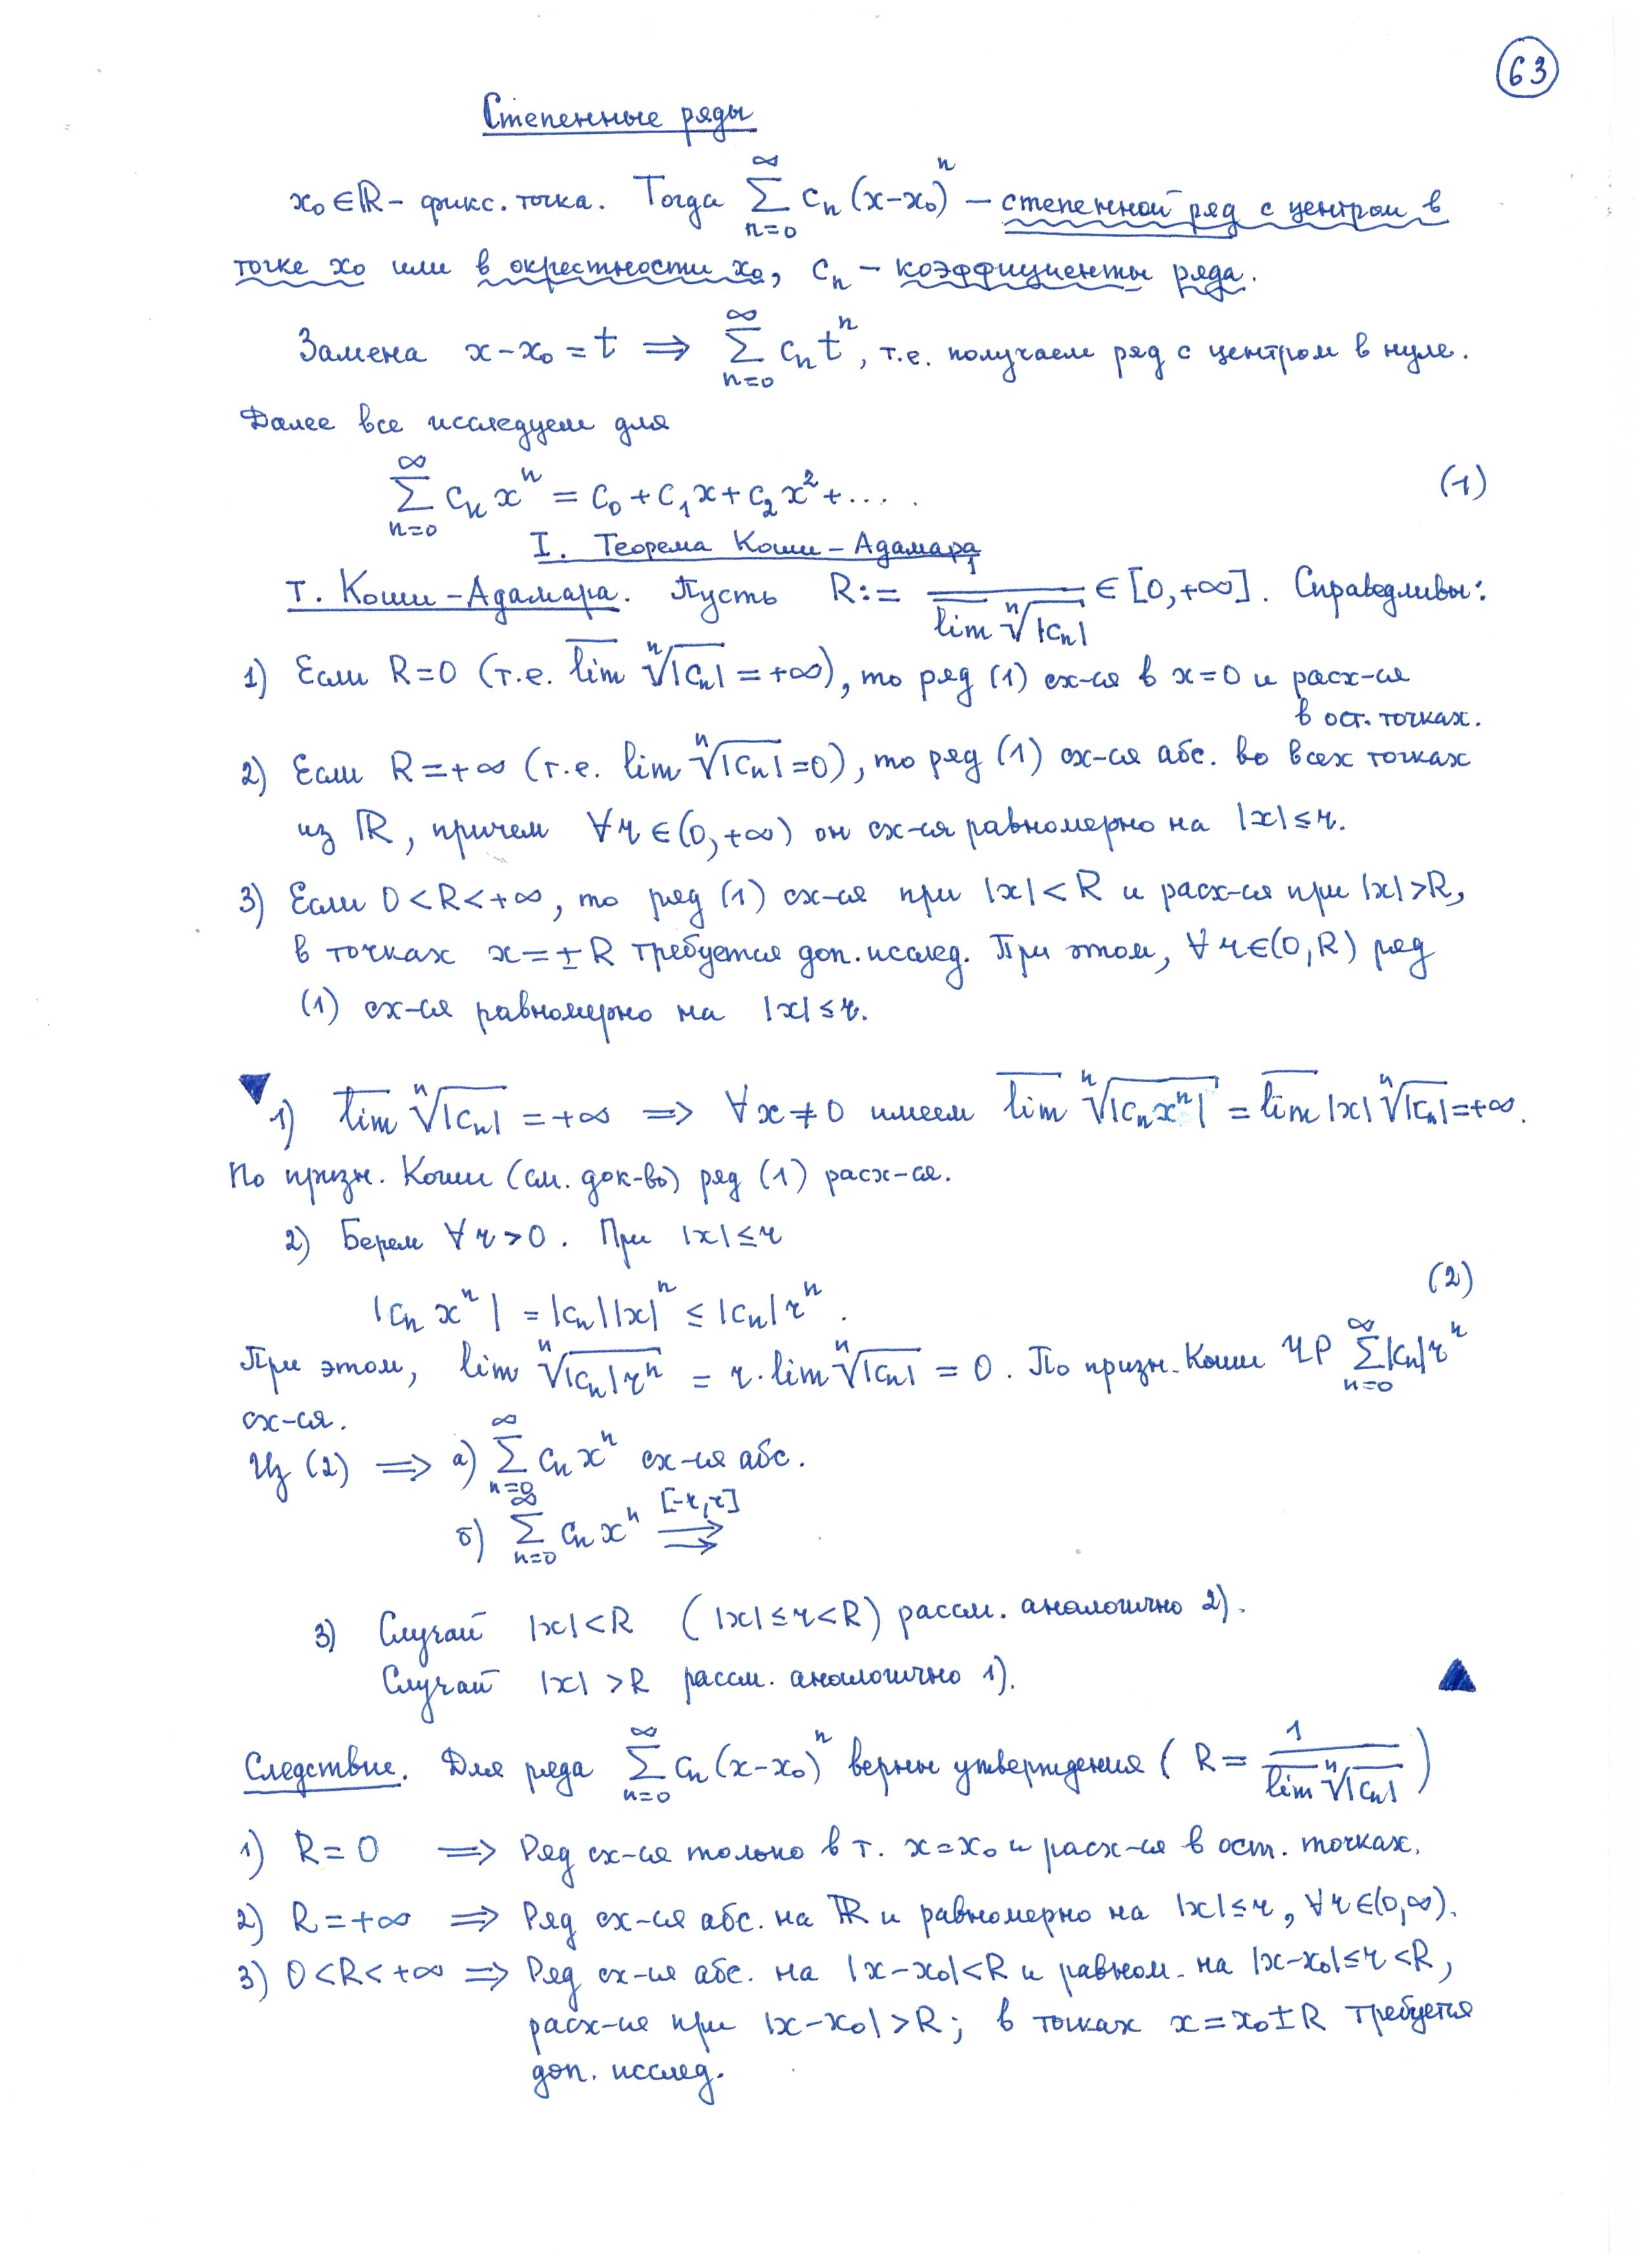 63
Степенные ряды
x₀ ∈ ℝ – фикс. точка. Тогда ∑_{n=0}^{∞} cₙ (x–x₀)ⁿ – степенной ряд с центром в
точке x₀ или в окрестности x₀, cₙ – коэффициенты ряда.
Замена x–x₀ = t ⟹ ∑_{n=0}^{∞} cₙ tⁿ, т.е. получаем ряд с центром в нуле.
Далее все исследуем для
∑_{n=0}^{∞} cₙ xⁿ = c₀ + c₁x + c₂x² + ... . (1)
I. Теорема Коши – Адамара
Т. Коши – Адамара. Пусть R := 1/(\overline{lim} ⁿ√|cₙ|) ∈ [0,+∞]. Справедливы:
1) Если R=0 (т.е. \overline{lim} ⁿ√|cₙ| = +∞), то ряд (1) сх-ся в x=0 и расх-ся
в ост. точках.
2) Если R=+∞ (т.е. lim ⁿ√|cₙ| =0), то ряд (1) сх-ся абс. во всех точках
из ℝ, причем ∀ r ∈ (0,+∞) он сх-ся равномерно на |x| ≤ r.
3) Если 0<R<+∞, то ряд (1) сх-ся при |x|<R и расх-ся при |x|>R,
в точках x=±R требуется доп. исслед. При этом, ∀ r∈(0,R) ряд
(1) сх-ся равномерно на |x| ≤ r.
▼ 1) \overline{lim} ⁿ√|cₙ| = +∞ ⟹ ∀ x≠0 имеем \overline{lim} ⁿ√|cₙxⁿ| = \overline{lim} |x| ⁿ√|cₙ| = +∞.
По призн. Коши (см. док-во) ряд (1) расх-ся.
2) Берем ∀ r>0. При |x| ≤ r
|cₙ xⁿ| = |cₙ||x|ⁿ ≤ |cₙ| rⁿ. (2)
При этом, lim ⁿ√|cₙ|rⁿ = r·lim ⁿ√|cₙ| = 0. По призн. Коши ЧР ∑_{n=0}^{∞} |cₙ|rⁿ
сх-ся.
Из (2) ⟹ а) ∑_{n=0}^{∞} cₙ xⁿ сх-ся абс.
б) ∑_{n=0}^{∞} cₙ xⁿ ⇉^{[-r,r]}
3) Случай |x|<R (|x| ≤ r<R) рассм. аналогично 2).
Случай |x|>R рассм. аналогично 1). ▲
Следствие. Для ряда ∑_{n=0}^{∞} cₙ (x–x₀)ⁿ верны утверждения (R = 1/(\overline{lim} ⁿ√|cₙ|))
1) R=0 ⟹ Ряд сх-ся только в т. x=x₀ и расх-ся в ост. точках.
2) R=+∞ ⟹ Ряд сх-ся абс. на ℝ и равномерно на |x| ≤ r, ∀ r∈(0,∞).
3) 0<R<+∞ ⟹ Ряд сх-ся абс. на |x–x₀|<R и равном. на |x–x₀| ≤ r<R,
расх-ся при |x–x₀|>R; в точках x=x₀±R требуется
доп. исслед.